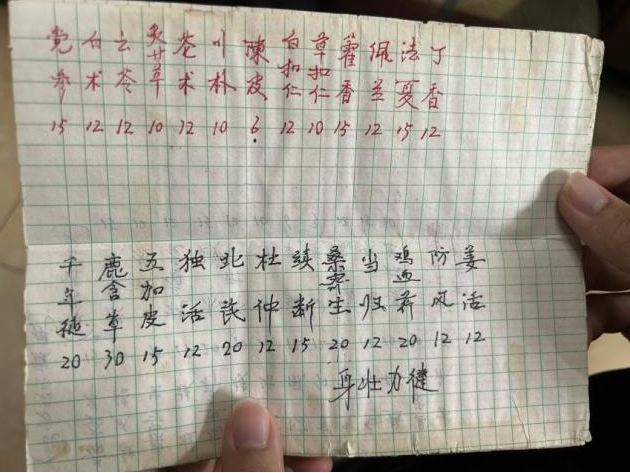 党参 15
白术 12
云苓 12
炙甘草 10
苍术 12
川朴 10
陳皮 6
白扣仁 12
草扣仁 10
藿香 15
佩兰 12
法夏 15
丁香 12
千年健 20
鹿含草 30
五加皮 15
独活 12
北芪 20
杜仲 12
续断 15
桑寄生 20
当归 12
鸡血藤 20
防风 12
姜活 12
身壮力健